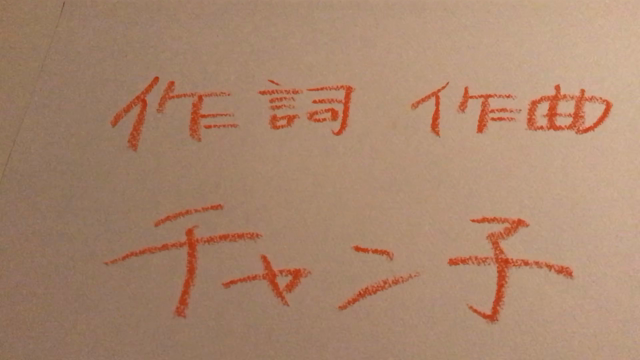 作詞 作曲
チャン子